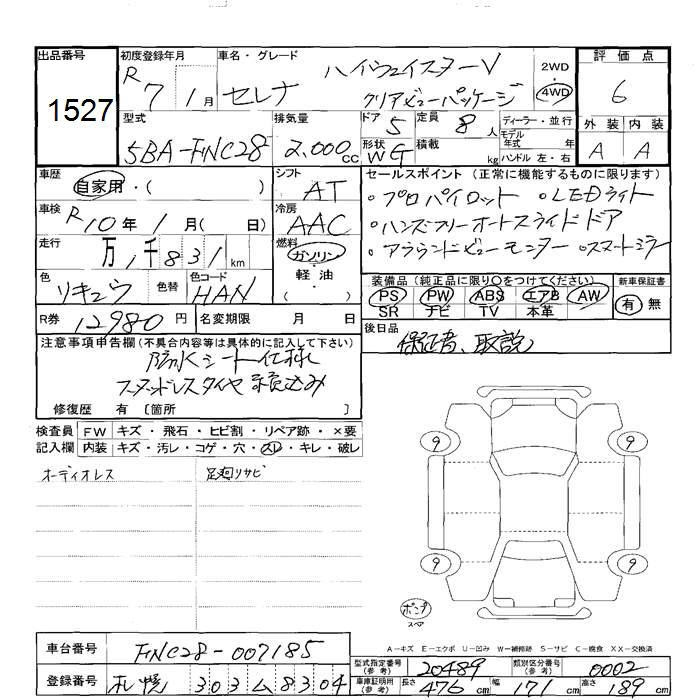 出品番号
1527
初度登録年月
R 7 1月
車名・グレード
セレナ ハイウェイスターV
クリアビューパッケージ
2WD
4WD
評価点
6
外装 内装
A A
型式
5BA-FNC28
排気量
2.000cc
ドア 5
定員 8人
形状 WG
積載 kg
ディーラー・並行
モデル年式 年
ハンドル 左・右
車歴
自家用・( )
シフト
AT
車検
R10年1月( 日)
冷房
AAC
走行
万 1千831km
燃料
ガソリン
軽油
・( )
色
リキュウ
色替
色コード
HAN
R券
12980円
名変期限 月 日
セールスポイント(正常に機能するものに限ります)
・プロパイロット ・LEDライト
・ハンズフリーオートスライドドア
・アラウンドビューモニター ・スマートミラー
装備品(純正品に限り○をつけてください)
PS PW ABS エアB AW
SR ナビ TV 本革
新車保証書
有 無
後日品
保証書、取説
注意事項申告欄(不具合内容等は具体的に記入して下さい)
防水シート仕様
スタッドレスタイヤ積込み
修復歴 有 〔箇所 〕
検査員記入欄
FW キズ・飛石・ヒビ割・リペア跡・×要
内装 キズ・汚レ・コゲ・穴・スレ・キレ・破レ
オーディオレス
足廻リサビ
9 9
9 9
スペア
A−キズ E−エクボ U−凹み W−補修跡 S−サビ C−腐食 XX−交換済
車台番号
FNC28-007185
登録番号
札幌 303 ム 8304
型式指定番号(参考) 20489
類別区分番号(参考) 0002
車庫証明用(参考) 長さ 476cm 幅 171cm 高さ 189cm